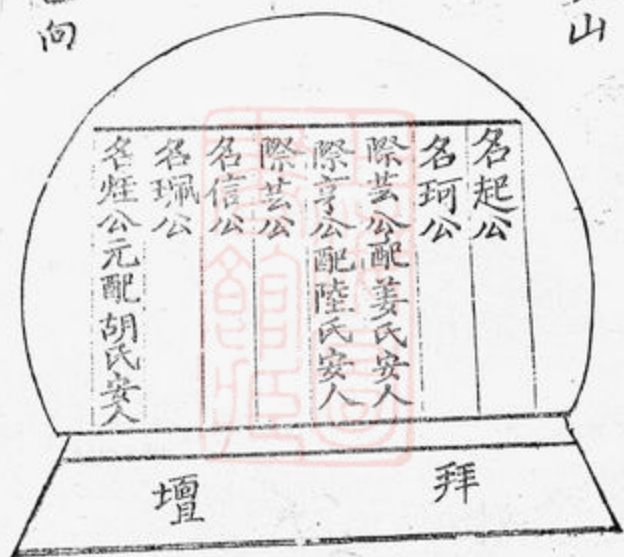 山
向
名起公
名珂公
際芸公配姜氏安人
際亨公配陸氏安人
際芸公
名信公
名珮公
名烓公元配胡氏安人
拜壇